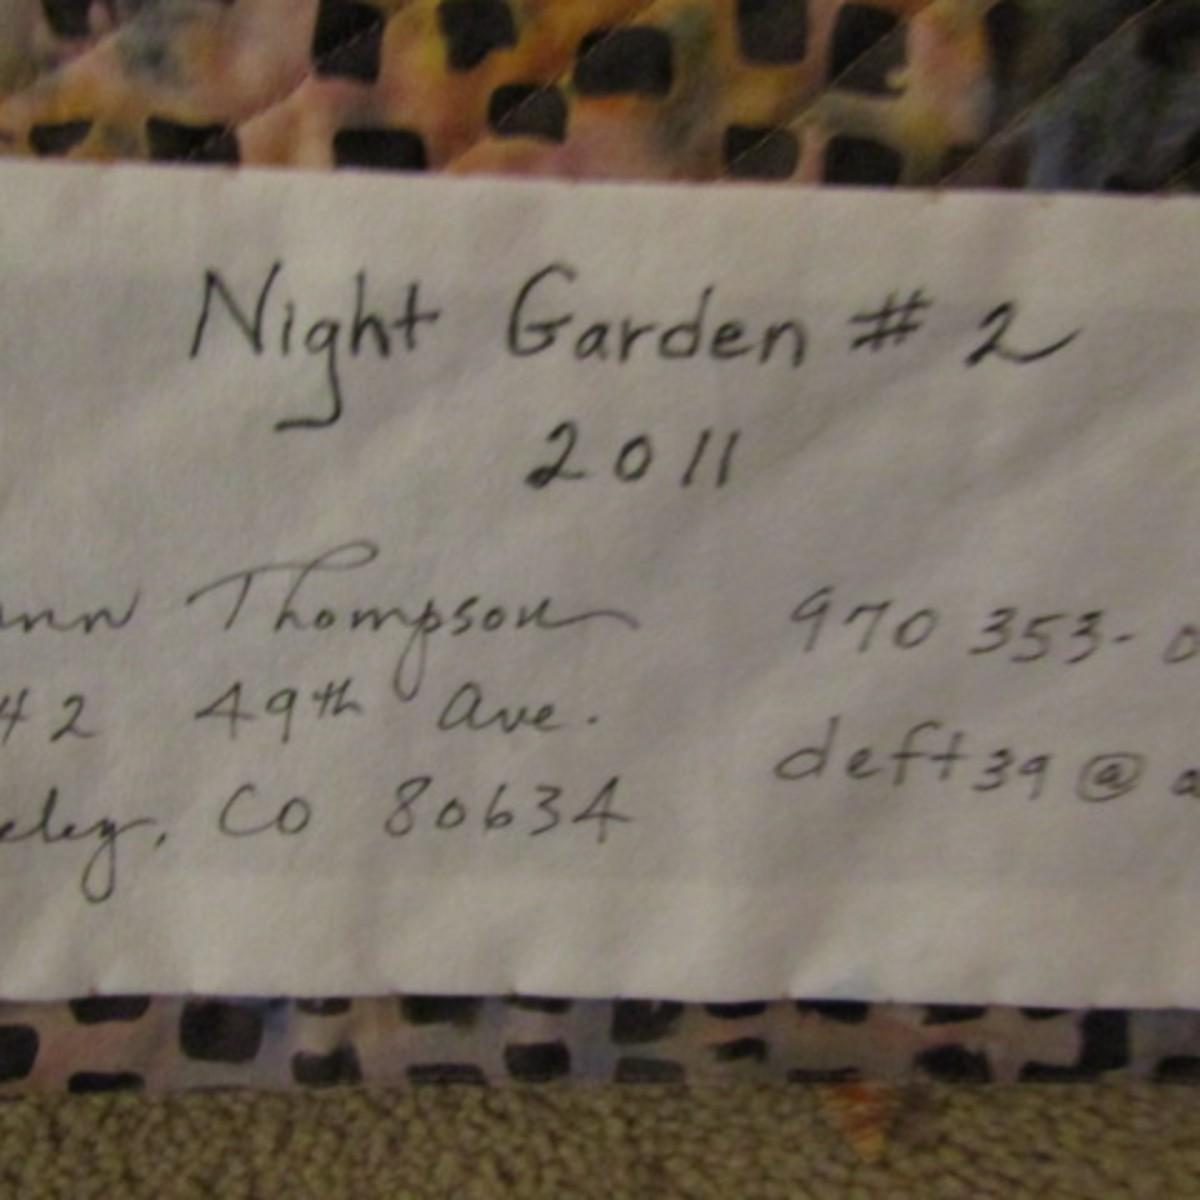 Night Garden # 2
2011
Thompson
49th Ave.
CO 80634
970 353-
deft39@